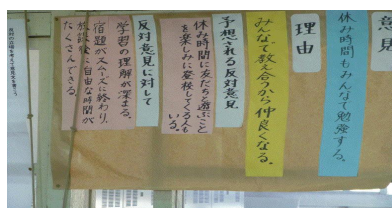 意見
休み時間もみんなで勉強する。
理由
みんなで教え合うから仲良くなる。
予想される反対意見
休み時間に友だちと遊ぶこと
を楽しみに登校してくる人も
いる。
反対意見に対して
学習の理解が深まる。
宿題がスムーズに終わり、
放課後に自由な時間が
たくさんできる。